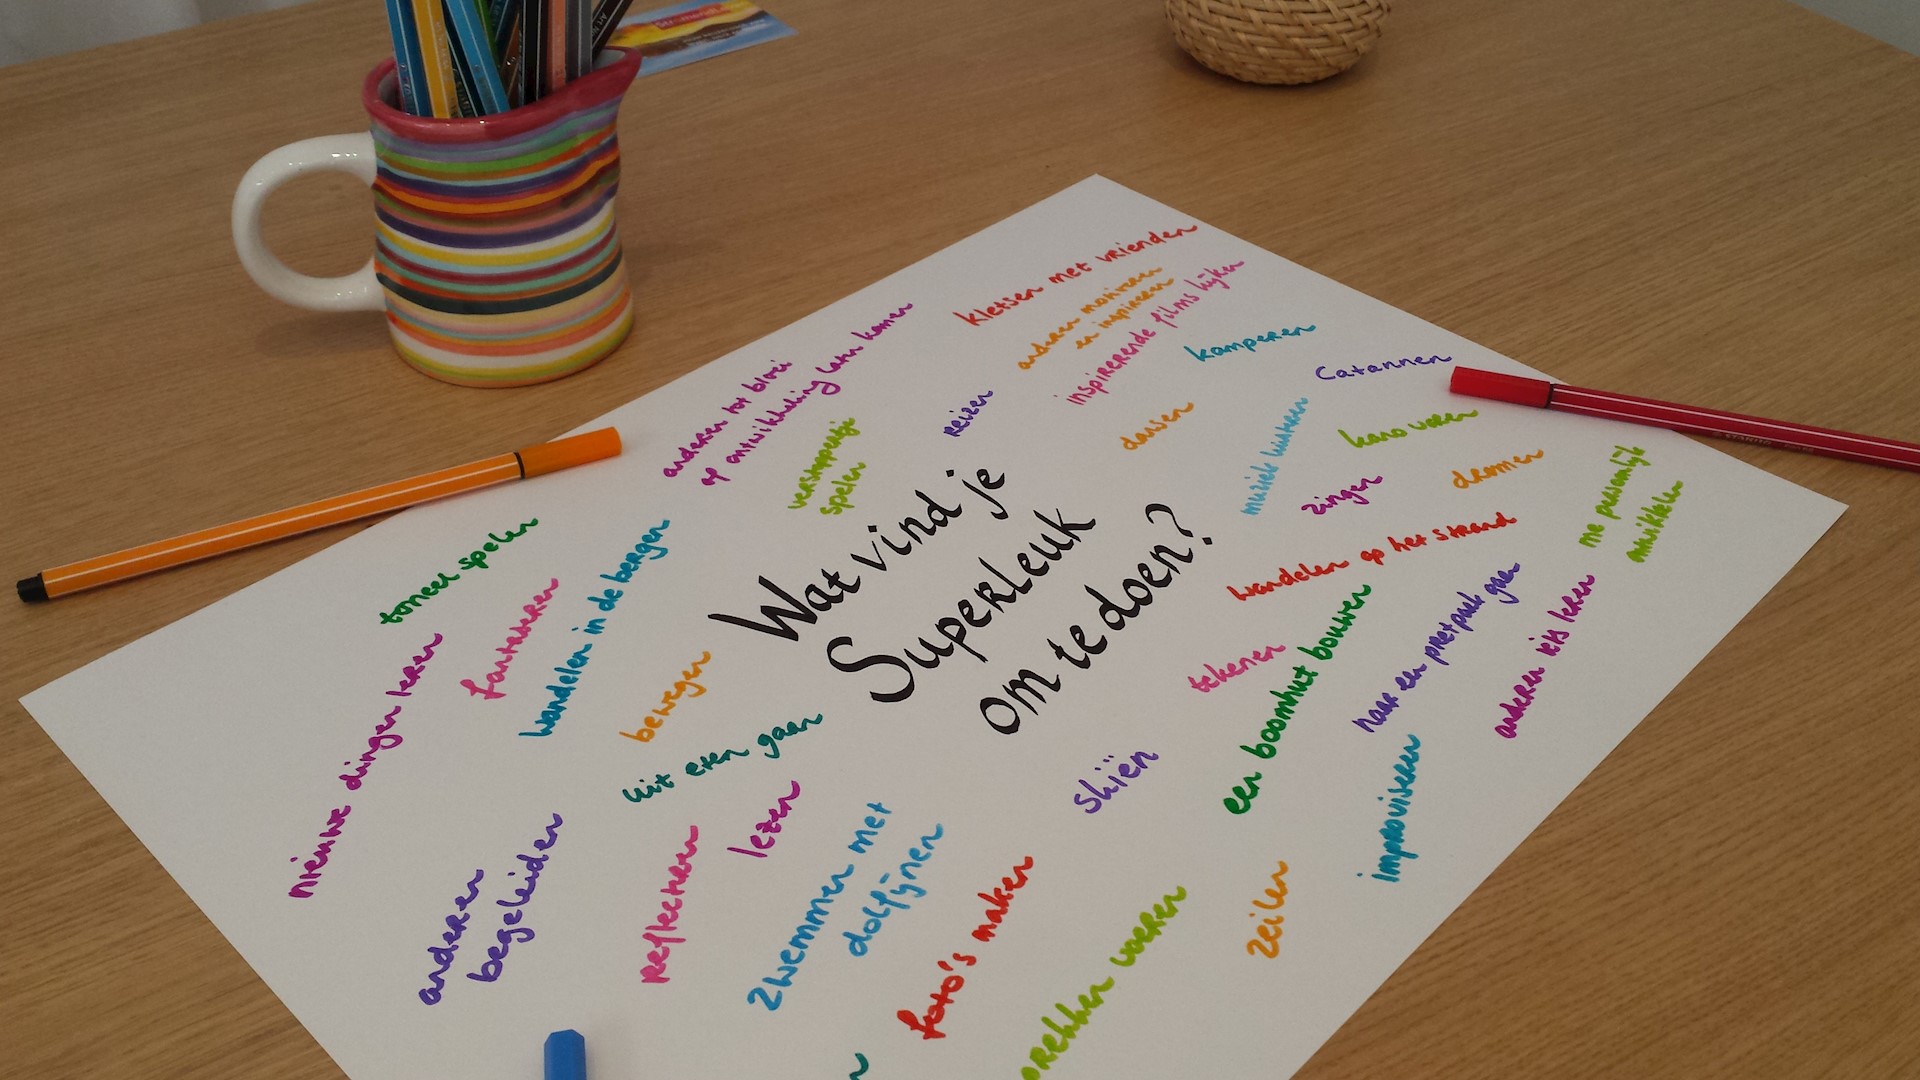 kletsen met vrienden
anderen motiveren
en inspireren
inspirerende films kijken
kamperen
Catannen
anderen tot bloei
of ontwikkeling laten komen
reizen
verstoppertje
spelen
dansen
muziek luisteren
kano varen
zingen
dromen
me persoonlijk
ontwikkelen
Wat vind je
Superleuk
om te doen?
toneel spelen
fantaseren
wandelen in de bergen
wandelen op het strand
bewegen
nieuwe dingen leren
uit eten gaan
tekenen
een boomhut bouwen
naar een pretpark gaan
anderen iets leren
skiën
improviseren
lezen
reflecteren
anderen
begeleiden
zwemmen met
dolfijnen
foto's maken
zeilen
voeren